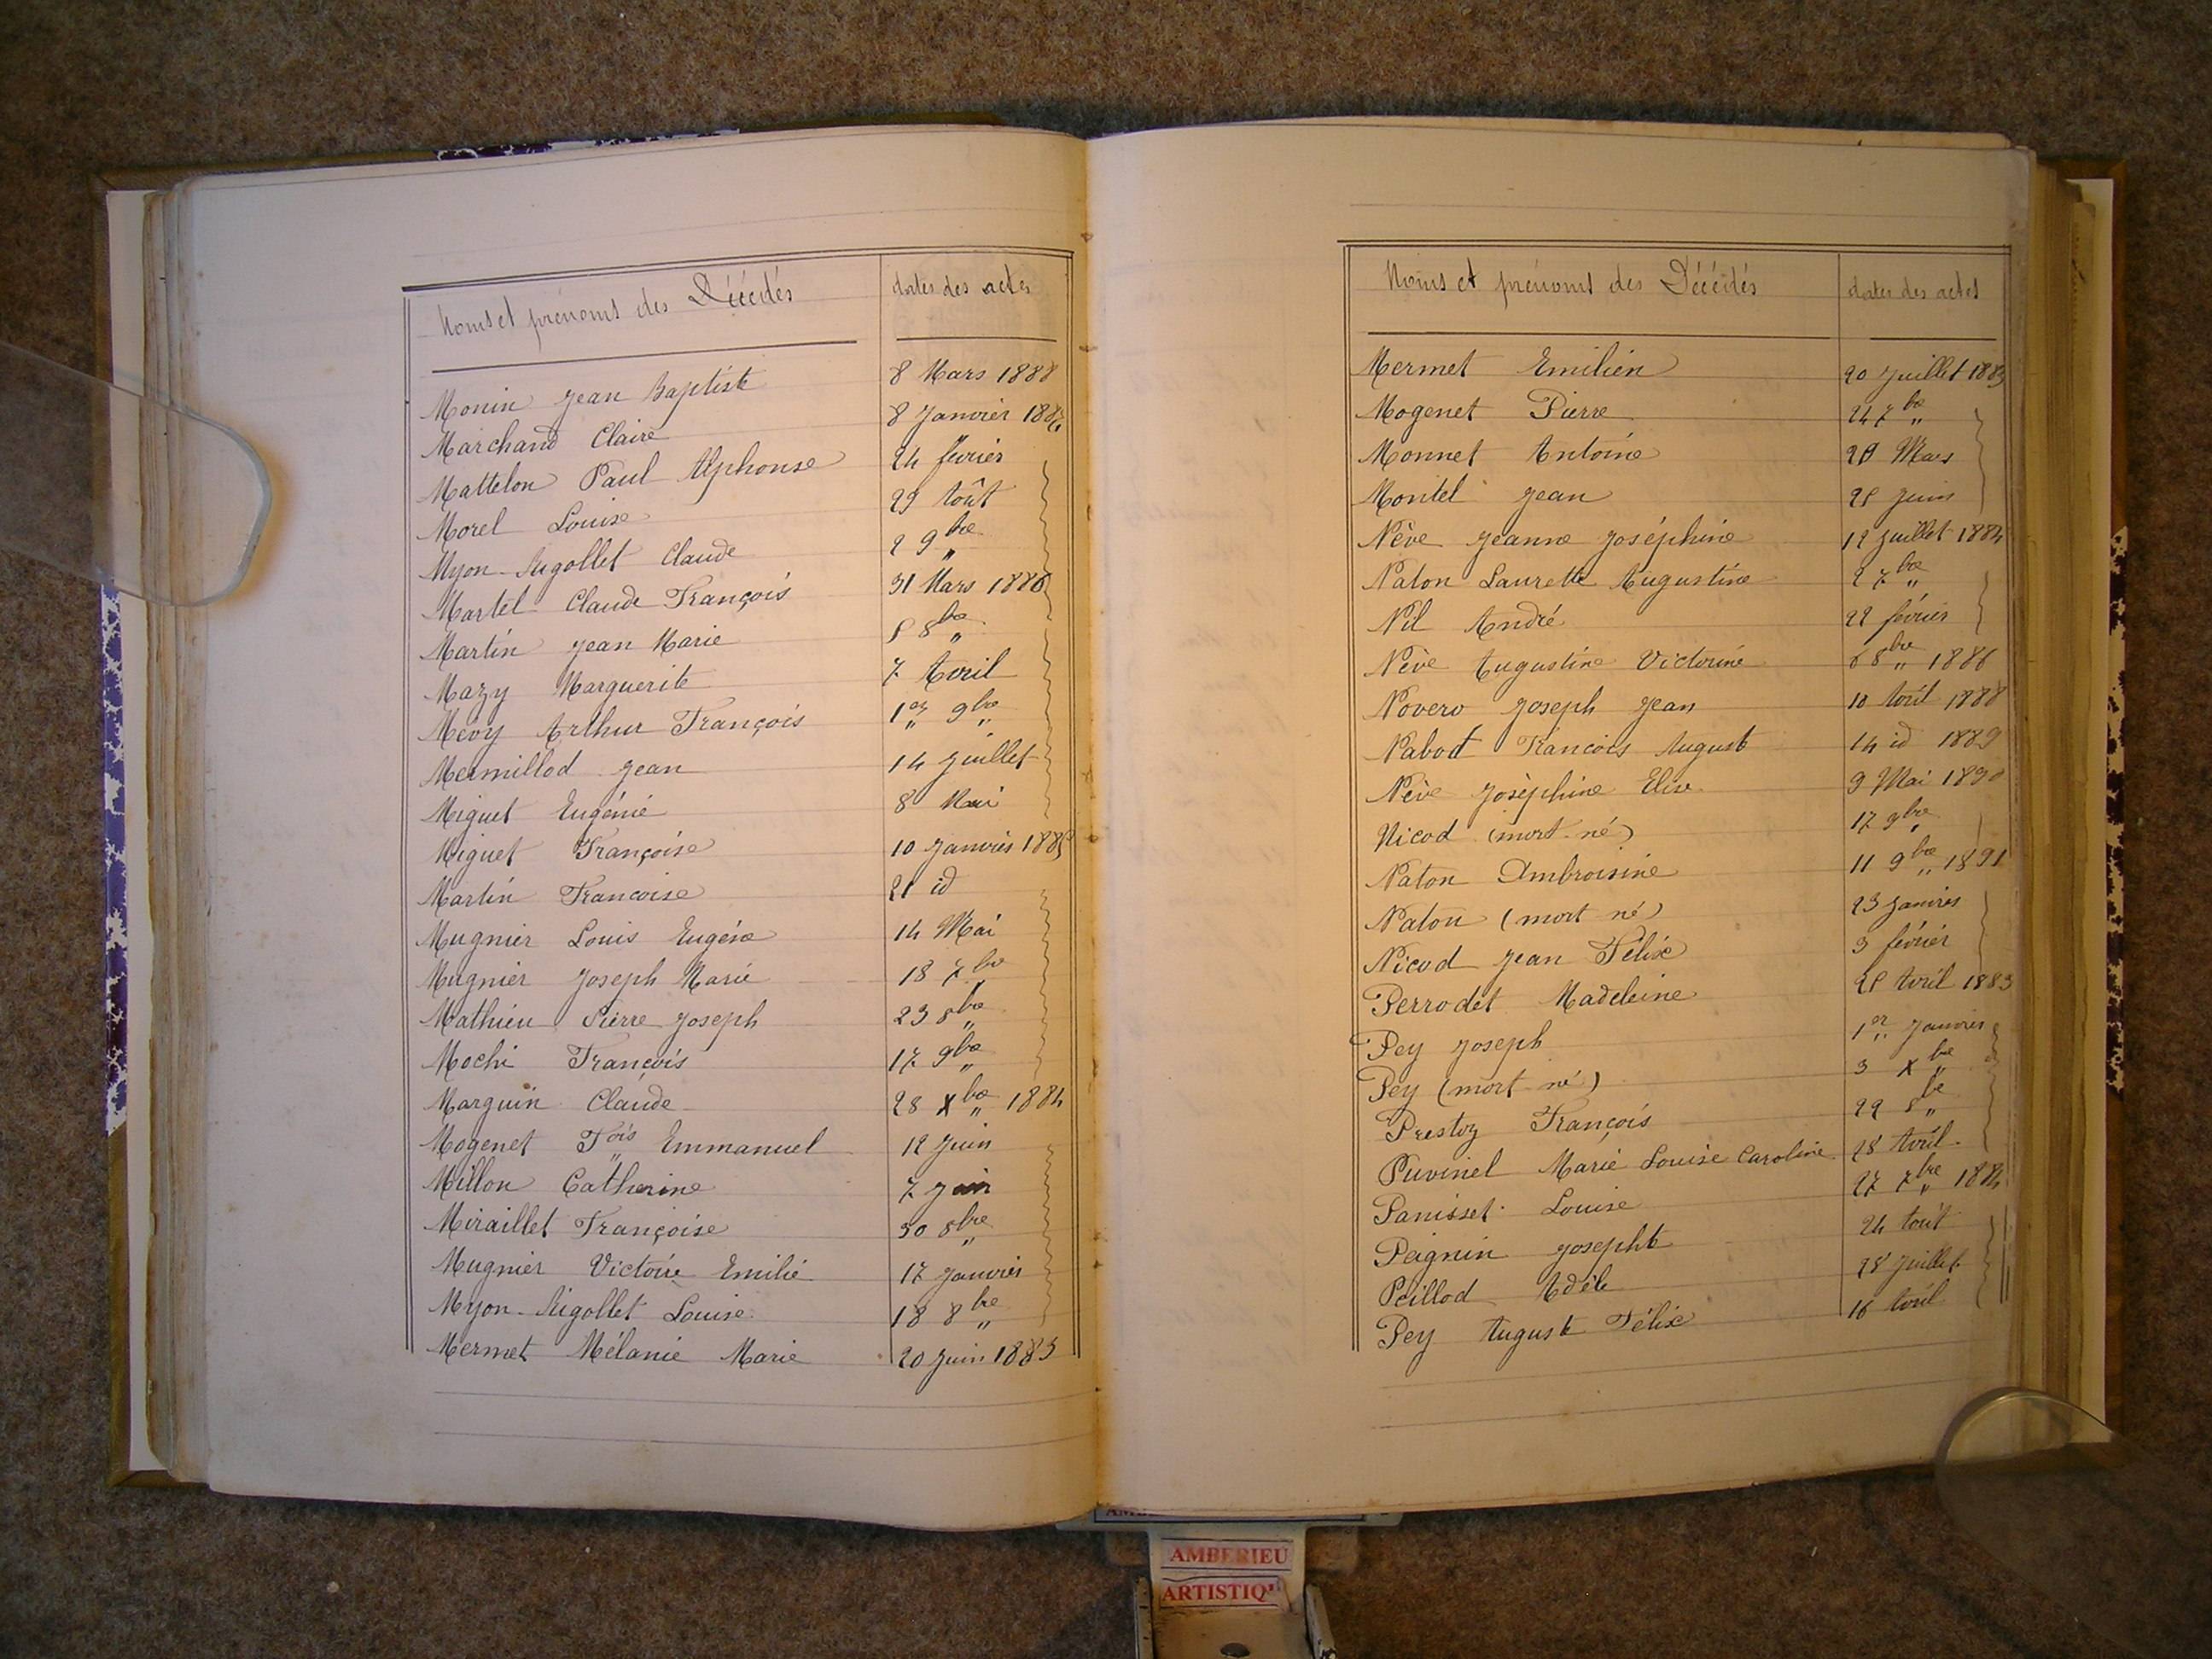 Noms et prénoms des Décédés
dates des actes
Monin Jean Baptiste 8 Mars 1888
Marchand Claire 8 Janvier
Mattelon Paul Alphonse 24 février
Morel Louise 29 Août
Myon-Rigollet Claude 2 9bre „
Martel Claude François 31 Mars 1886
Martin Jean Marie 8bre „
Mazy Marguerite 7 Avril
Mévy Arthur François 1er 9bre „
Mermillod Jean 14 Juillet
Miguet Eugénie 8 Mai
Miguet Françoise 10 Janvier
Martin Francoise 21 id
Mugnier Louis Eugène 14 Mai
Mugnier Joseph Marie 18 7bre
Mathieu Pierre Joseph 23 8bre „
Mochi François 17 9bre „
Marguin Claude 28 Xbre „ 1884
Mogenet Fois „ Emmanuel 12 Juin
Millon Catherine 7 Juin
Miraillet Françoise 30 8bre „
Mugnier Victoire Emilie 17 Janvier
Myon-Rigollet Louise 18 8bre „
Mermet Mélanie Marie 20 Juin 1883
Noms et prénoms des Décédés
dates des actes
Mermet Emilien 20 Juillet 1883
Mogenet Pierre 24 7bre „
Monnet Antoine Mars
Montel Jean Juin
Nève Jeanne Joséphine 12 Juillet 1884
Naton Laurette Augustine 2 7bre „
Nil André 22 février
Nève Augustine Victorine 6 8bre „ 1886
Novero Joseph Jean 10 Août 1888
Nabot Francois Auguste 14 id 1889
Nève Joséphine Elise 9 Mai 1890
Nicod (mort-né) 17 9bre „
Naton Ambroisine 11 9bre „ 1891
Naton (mort né) 23 Janvier
Nicod Jean Félix 3 février
Perrodet Madeleine Avril 1883
Pey Joseph 1er „ Janvier
Pey (mort-né) 3 Xbre „
Prestoz François 22 8bre „
Puvinel Marie Louise Caroline 28 Avril
Panisset Louise 27 7bre „ 1884
Peignin Josephte 24 Août
Peillod Adèle 28 Juillet
Pey Auguste Félix 16 Avril
AMBERIEU
ARTISTIQ